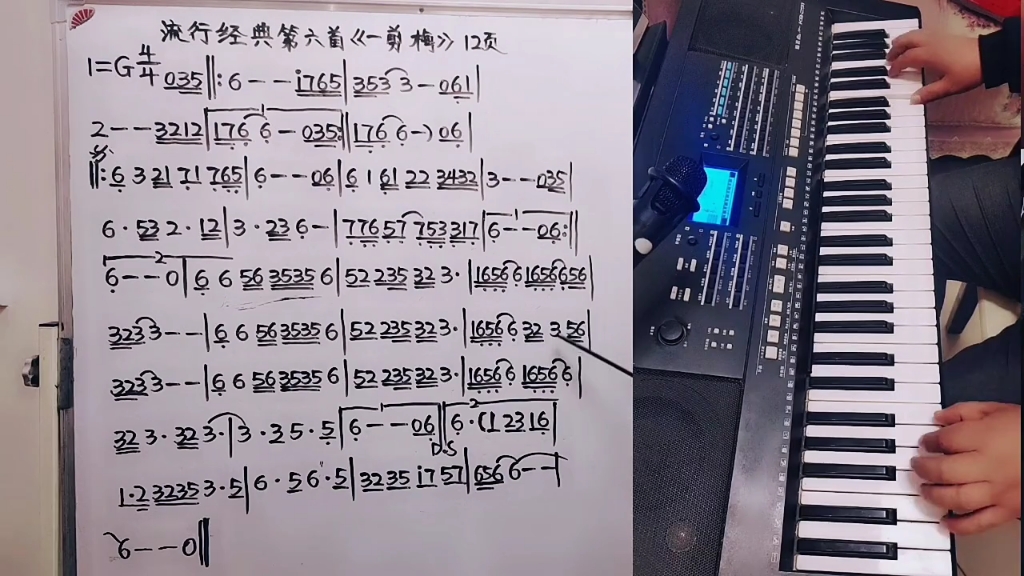 流行经典第六首《一剪梅》12页
1=G 4/4 035‖: 6 - - i765|353 3 - 061|
2 - - 3212|176 6 - 035:‖176 6 -) 06|
‖: 6 3 21 71 765|6 - - 06|6 1 61 22 3432|3 - - 035|
6 · 53 2 · 12|3 · 23 6 -|776 57 753 317|6 - - 06:‖
6 - - 0|6 6 56 3535 6|52 235 32 3 ·|1656 6 1656 656|
323 3 - -|6 6 56 3535 6|52 235 32 3 ·|1656 6 32 3 56|
323 3 - -|6 6 56 3535 6|52 235 32 3 ·|1656 6 1656 6|
32 3 · 32 3 ·|3 · 2 5 · 5|6 - - 06‖6 · (1 23 16|
D.S
1 · 2 3235 3 · 5|6 · 5 6 · 5|32 35 i7 57|656 6 - -|
6 - - 0‖